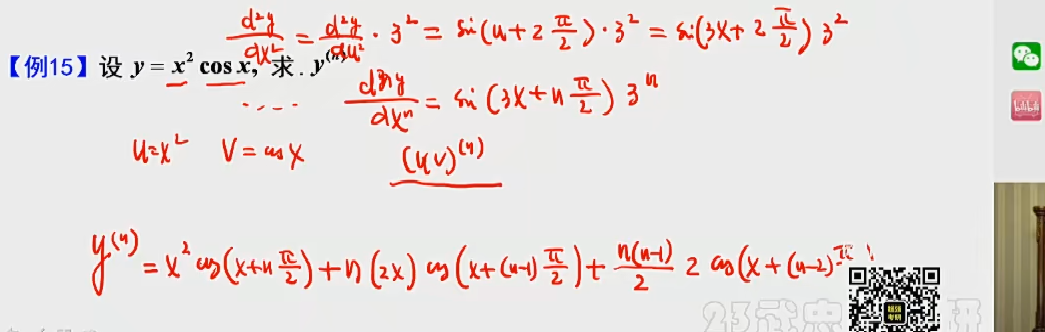 d²y/dx² = d²y/du² · 3² = sin(u+2π/2)·3² = sin(3x+2π/2)3²
【例15】设 y = x² cos x, 求. y⁽ⁿ⁾
..... dⁿy/dxⁿ = sin(3x+nπ/2)3ⁿ
u=x² V=cosx (uv)⁽ⁿ⁾
y⁽ⁿ⁾ = x² cos(x+nπ/2)+n(2x)cos(x+(n-1)π/2)+n(n-1)/2 2 cos(x+(n-2)π
bilibili
23武忠
研